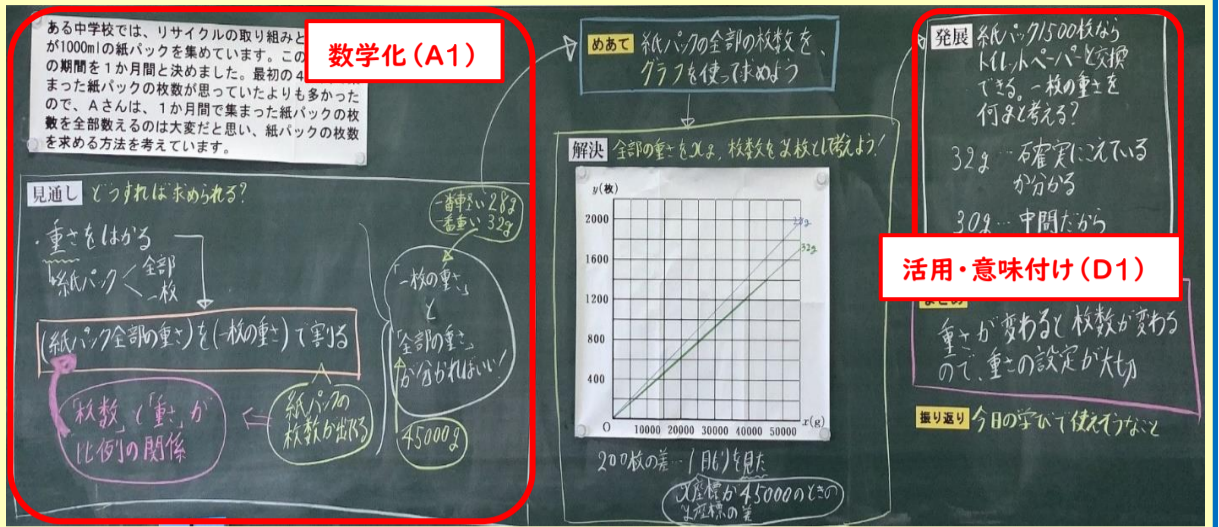 ある中学校では、リサイクルの取り組みと
が1000mlの紙パックを集めています。この
の期間を1か月間と決めました。最初の4
まった紙パックの枚数が思っていたよりも多かった
ので、Aさんは、1か月間で集まった紙パックの枚
数を全部数えるのは大変だと思い、紙パックの枚数
を求める方法を考えています。
数学化(A1)
見通し どうすれば求められる?
・重さをはかる
紙パック 全部
一枚
(紙パック全部の重さ)を(一枚の重さ)で割る
「枚数」と「重さ」が
比例の関係
紙パックの
枚数が出る
一番軽い28g
一番重い32g
「一枚の重さ」
と
「全部の重さ」
が分かればいい!
45000g
めあて 紙パックの全部の枚数を、
グラフを使って求めよう
解決 全部の重さをxg、枚数をy枚として考えよう!
y(枚)
2000
1600
1200
800
400
0
10000 20000 30000 40000 50000
x(g)
28g
32g
200枚の差…
を見た
x座標が45000のときの
y座標の差
発展 紙パック1500枚なら
トイレットペーパーと交換
できる。一枚の重さを
何gと考える?
32g…確実にこえている
か分かる
30g…中間だから
活用・意味付け(D1)
まとめ
重さが変わると枚数が変わる
ので、重さの設定が大切
振り返り 今日の学びで使えそうなこと